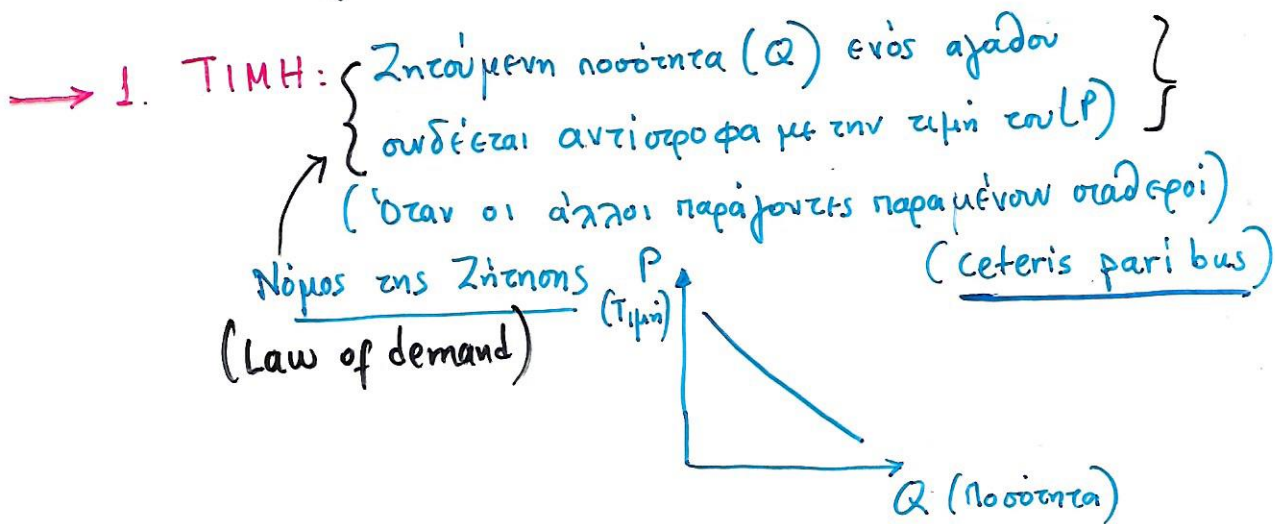 1. ΤΙΜΗ: Ζητούμενη ποσότητα (Q) ενός αγαθού
συνδέεται αντίστροφα με την τιμή του (P)
(Όταν οι άλλοι παράγοντες παραμένουν σταθεροί)
(ceteris paribus)
Νόμος της Ζήτησης
(Law of demand)
P
(Τιμή)
Q (Ποσότητα)